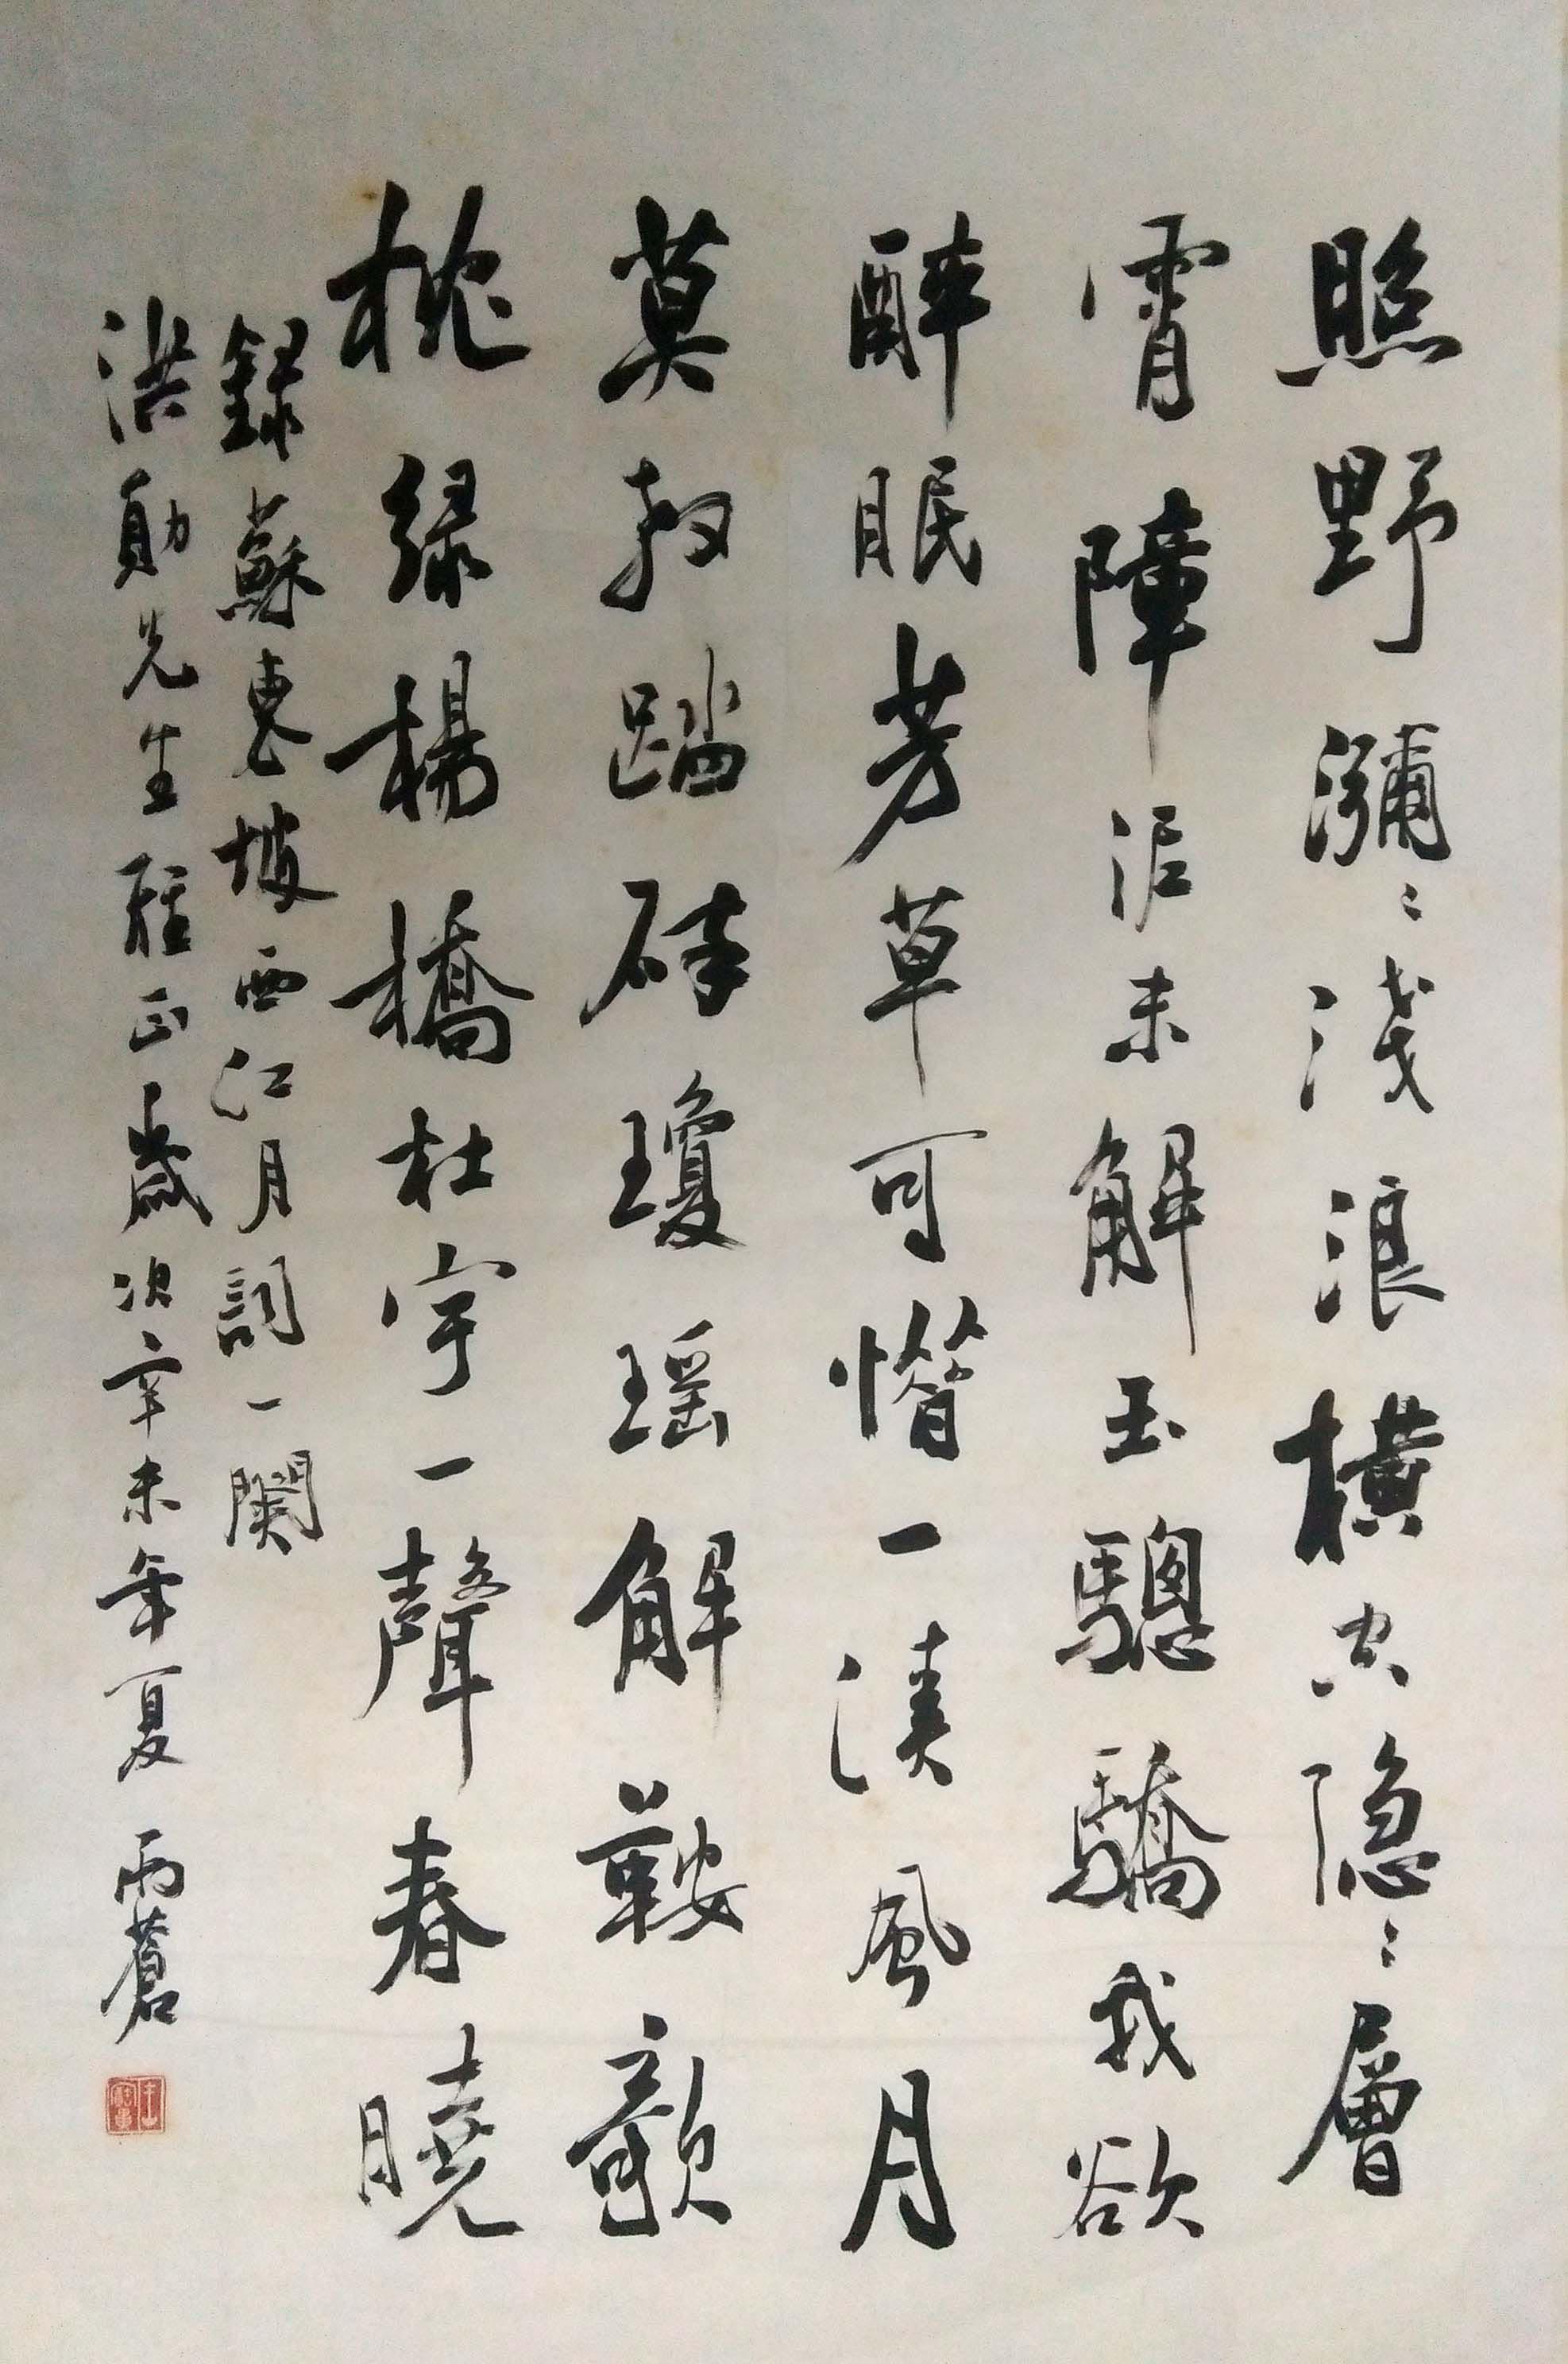 照野瀰〻淺浪橫空隐〻層
霄障泥未解玉驄驕我欲
醉眠芳草可惜一溪風月
莫教踏碎瓊瑶解鞍欹
枕緑楊橋杜宇一聲春曉
録蘇東坡西江月詞一闋
洪勛先生雅正歲次辛未年夏 雨蒼